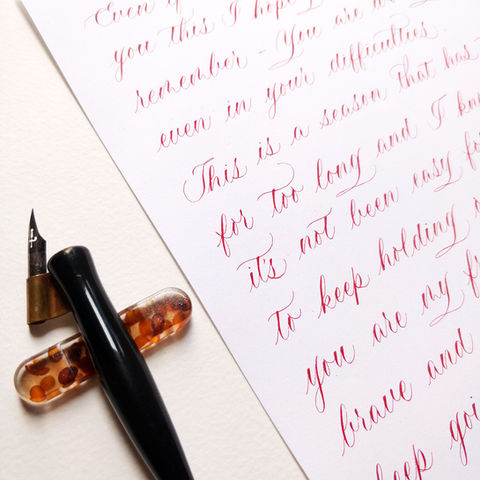 Even
you this I hope
remember - You are
even in your difficulties.
This is a season that has
for too long and I
it's not been easy
to keep holding
you are my
brave and
keep